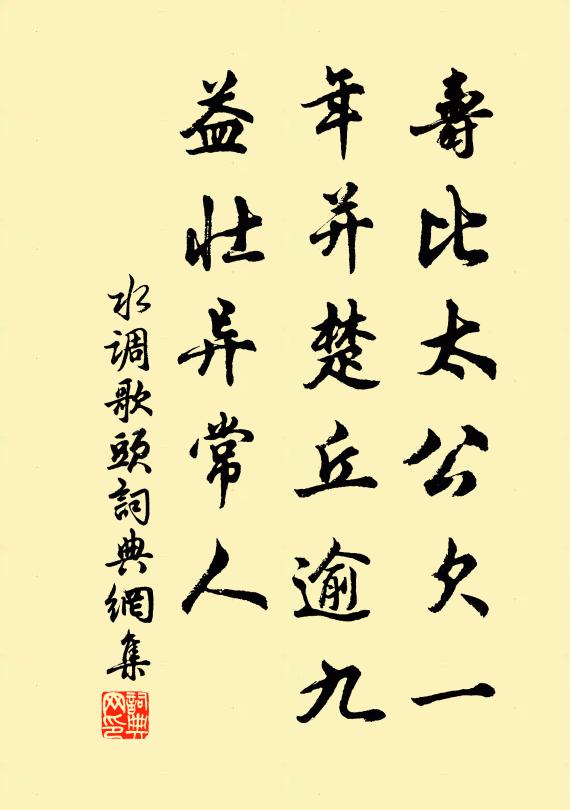 壽比太公欠一
年并楚丘逾九
益壯异常人
水调歌頭詞典網集
詞典网印